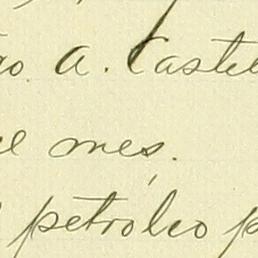 A. Castel
mes.
petróleo p